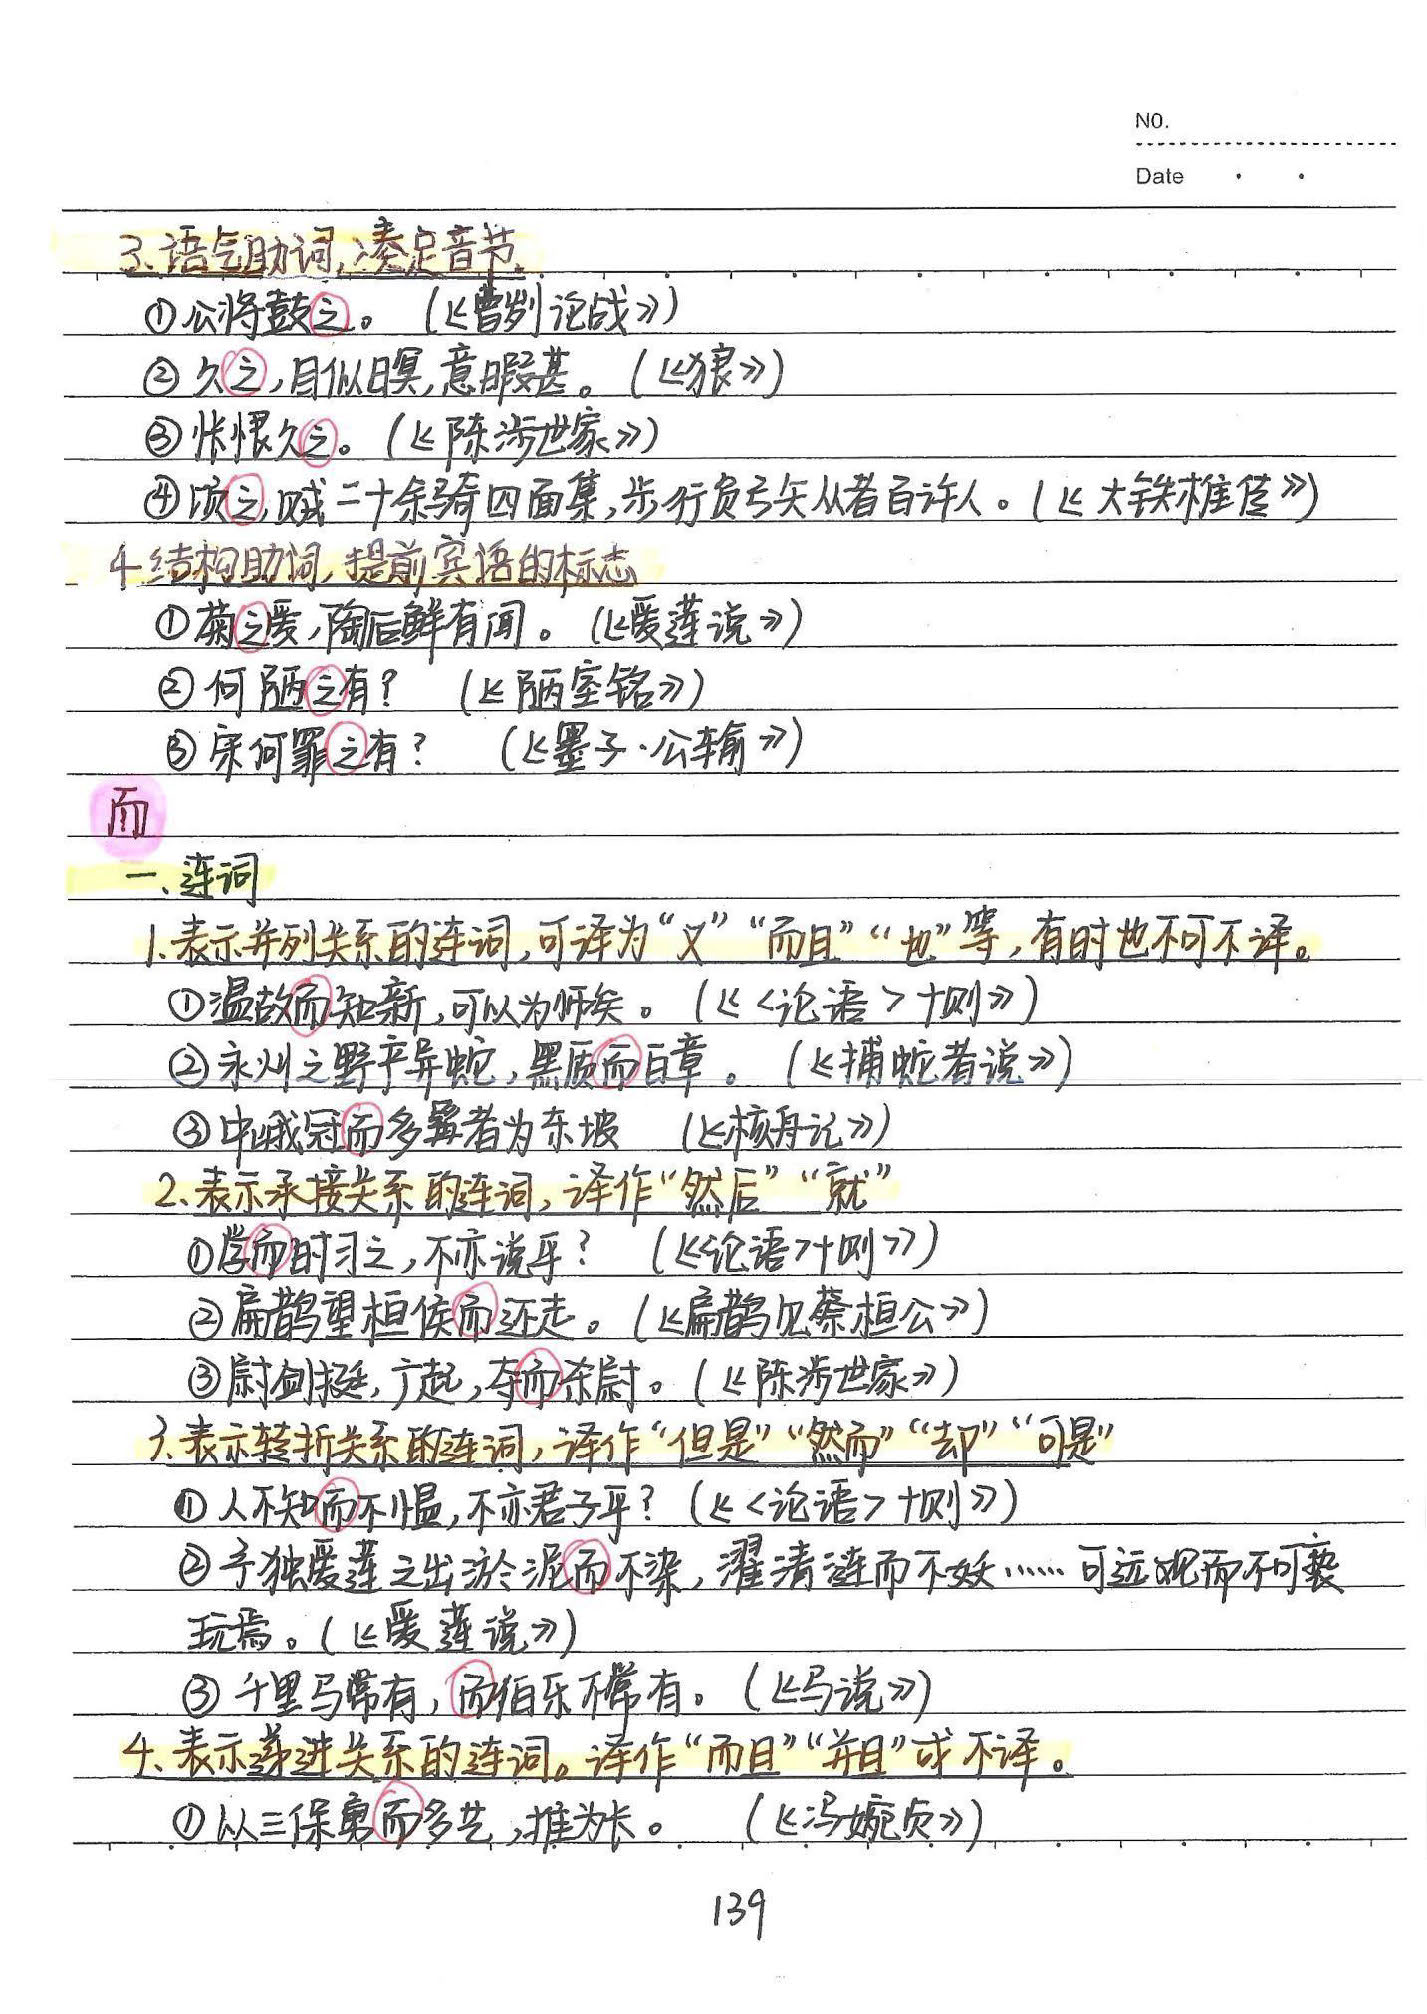 NO.
Date
3、语气助词，凑足音节。
①公将鼓之。（《曹刿论战》）
②久之，目似瞑，意暇甚。（《狼》）
③怅恨久之。（《陈涉世家》）
④顷之，贼二十余骑四面集，步行负弓矢从者百许人。（《大铁椎传》）
4、结构助词，提前宾语的标志
①菊之爱，陶后鲜有闻。（《爱莲说》）
②何陋之有？（《陋室铭》）
③宋何罪之有？（《墨子·公输》）
而
一、连词
1、表示并列关系的连词，可译为“又”“而且”“也”等，有时也不可不译。
①温故而知新，可以为师矣。（《〈论语〉十则》）
②永州之野产异蛇，黑质而白章。（《捕蛇者说》）
③中峨冠而多髯者为东坡（《核舟记》）
2、表示承接关系的连词，译作“然后”“就”
①学而时习之，不亦说乎？（《〈论语〉十则》）
②扁鹊望桓侯而还走。（《扁鹊见蔡桓公》）
③尉剑挺，广起，夺而杀尉。（《陈涉世家》）
3、表示转折关系的连词，译作“但是”“然而”“却”“可是”
①人不知而不愠，不亦君子乎？（《〈论语〉十则》）
②予独爱莲之出淤泥而不染，濯清涟而不妖……可远观而不可亵
玩焉。（《爱莲说》）
③千里马常有，而伯乐不常有。（《马说》）
4、表示递进关系的连词。译作“而且”“并且”或不译。
①以三保勇而多艺，推为长。（《冯婉贞》）
139